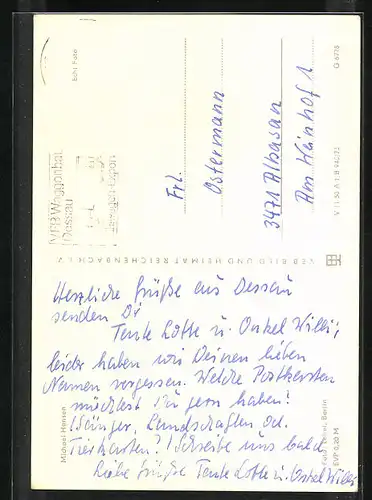 Echt Foto
VEB Waggonbau
Dessau
Frl.
Ostermann
3471 Albaxen
Am Hainhof 1
G 6778
V 11 50 A 1/B
VEB BILD UND HEIMAT REICHENBACH i. V.
Herzliche Grüße aus Dessau
senden Dir
Tante Lotte u. Onkel Willi;
leider haben wir Deinen lieben
Namen vergessen. Welche Postkarten
möchtest Du gern haben?
(Sänger, Landschaften od.
Tierkarten?) Schreibe uns bald.
Liebe Grüße Tante Lotte u. Onkel Willi
Michael Hansen
Berlin
EVP 0,20 M